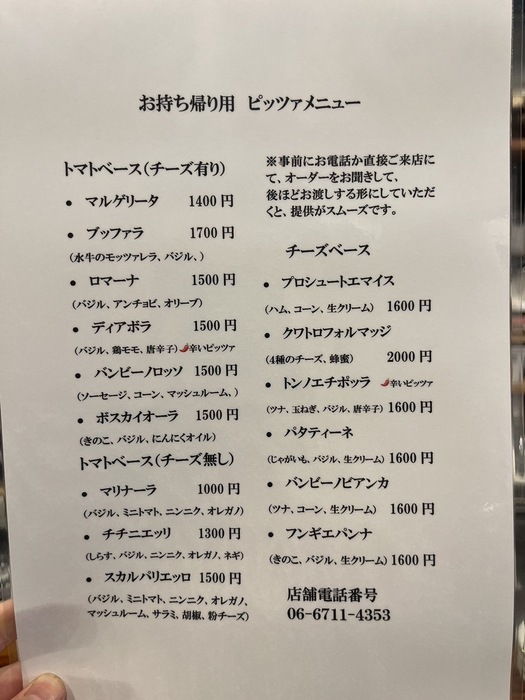 お持ち帰り用 ピッツァメニュー
トマトベース(チーズ有り)
• マルゲリータ 1400円
• ブッファラ 1700円
(水牛のモッツァレラ、バジル、)
• ロマーナ 1500円
(バジル、アンチョビ、オリーブ)
• ディアボラ 1500円
(バジル、鶏モモ、唐辛子)🌶辛いピッツァ
• バンビーノロッソ 1500円
(ソーセージ、コーン、マッシュルーム、)
• ボスカイオーラ 1500円
(きのこ、バジル、にんにくオイル)
トマトベース(チーズ無し)
• マリナーラ 1000円
(バジル、ミニトマト、ニンニク、オレガノ)
• チチニエッリ 1300円
(しらす、バジル、ニンニク、オレガノ、ネギ)
• スカルパリエッロ 1500円
(バジル、ミニトマト、ニンニク、オレガノ、
マッシュルーム、サラミ、胡椒、粉チーズ)
※事前にお電話か直接ご来店に
て、オーダーをお聞きして、
後ほどお渡しする形にしていただ
くと、提供がスムーズです。
チーズベース
• プロシュートエマイス
(ハム、コーン、生クリーム) 1600円
• クワトロフォルマッジ
(4種のチーズ、蜂蜜) 2000円
• トンノエチポッラ 🌶辛いピッツァ
(ツナ、玉ねぎ、バジル、唐辛子) 1600円
• パタティーネ
(じゃがいも、バジル、生クリーム) 1600円
• バンビーノビアンカ
(ツナ、コーン、生クリーム) 1600円
• フンギエパンナ
(きのこ、バジル、生クリーム) 1600円
店舗電話番号
06-6711-4353